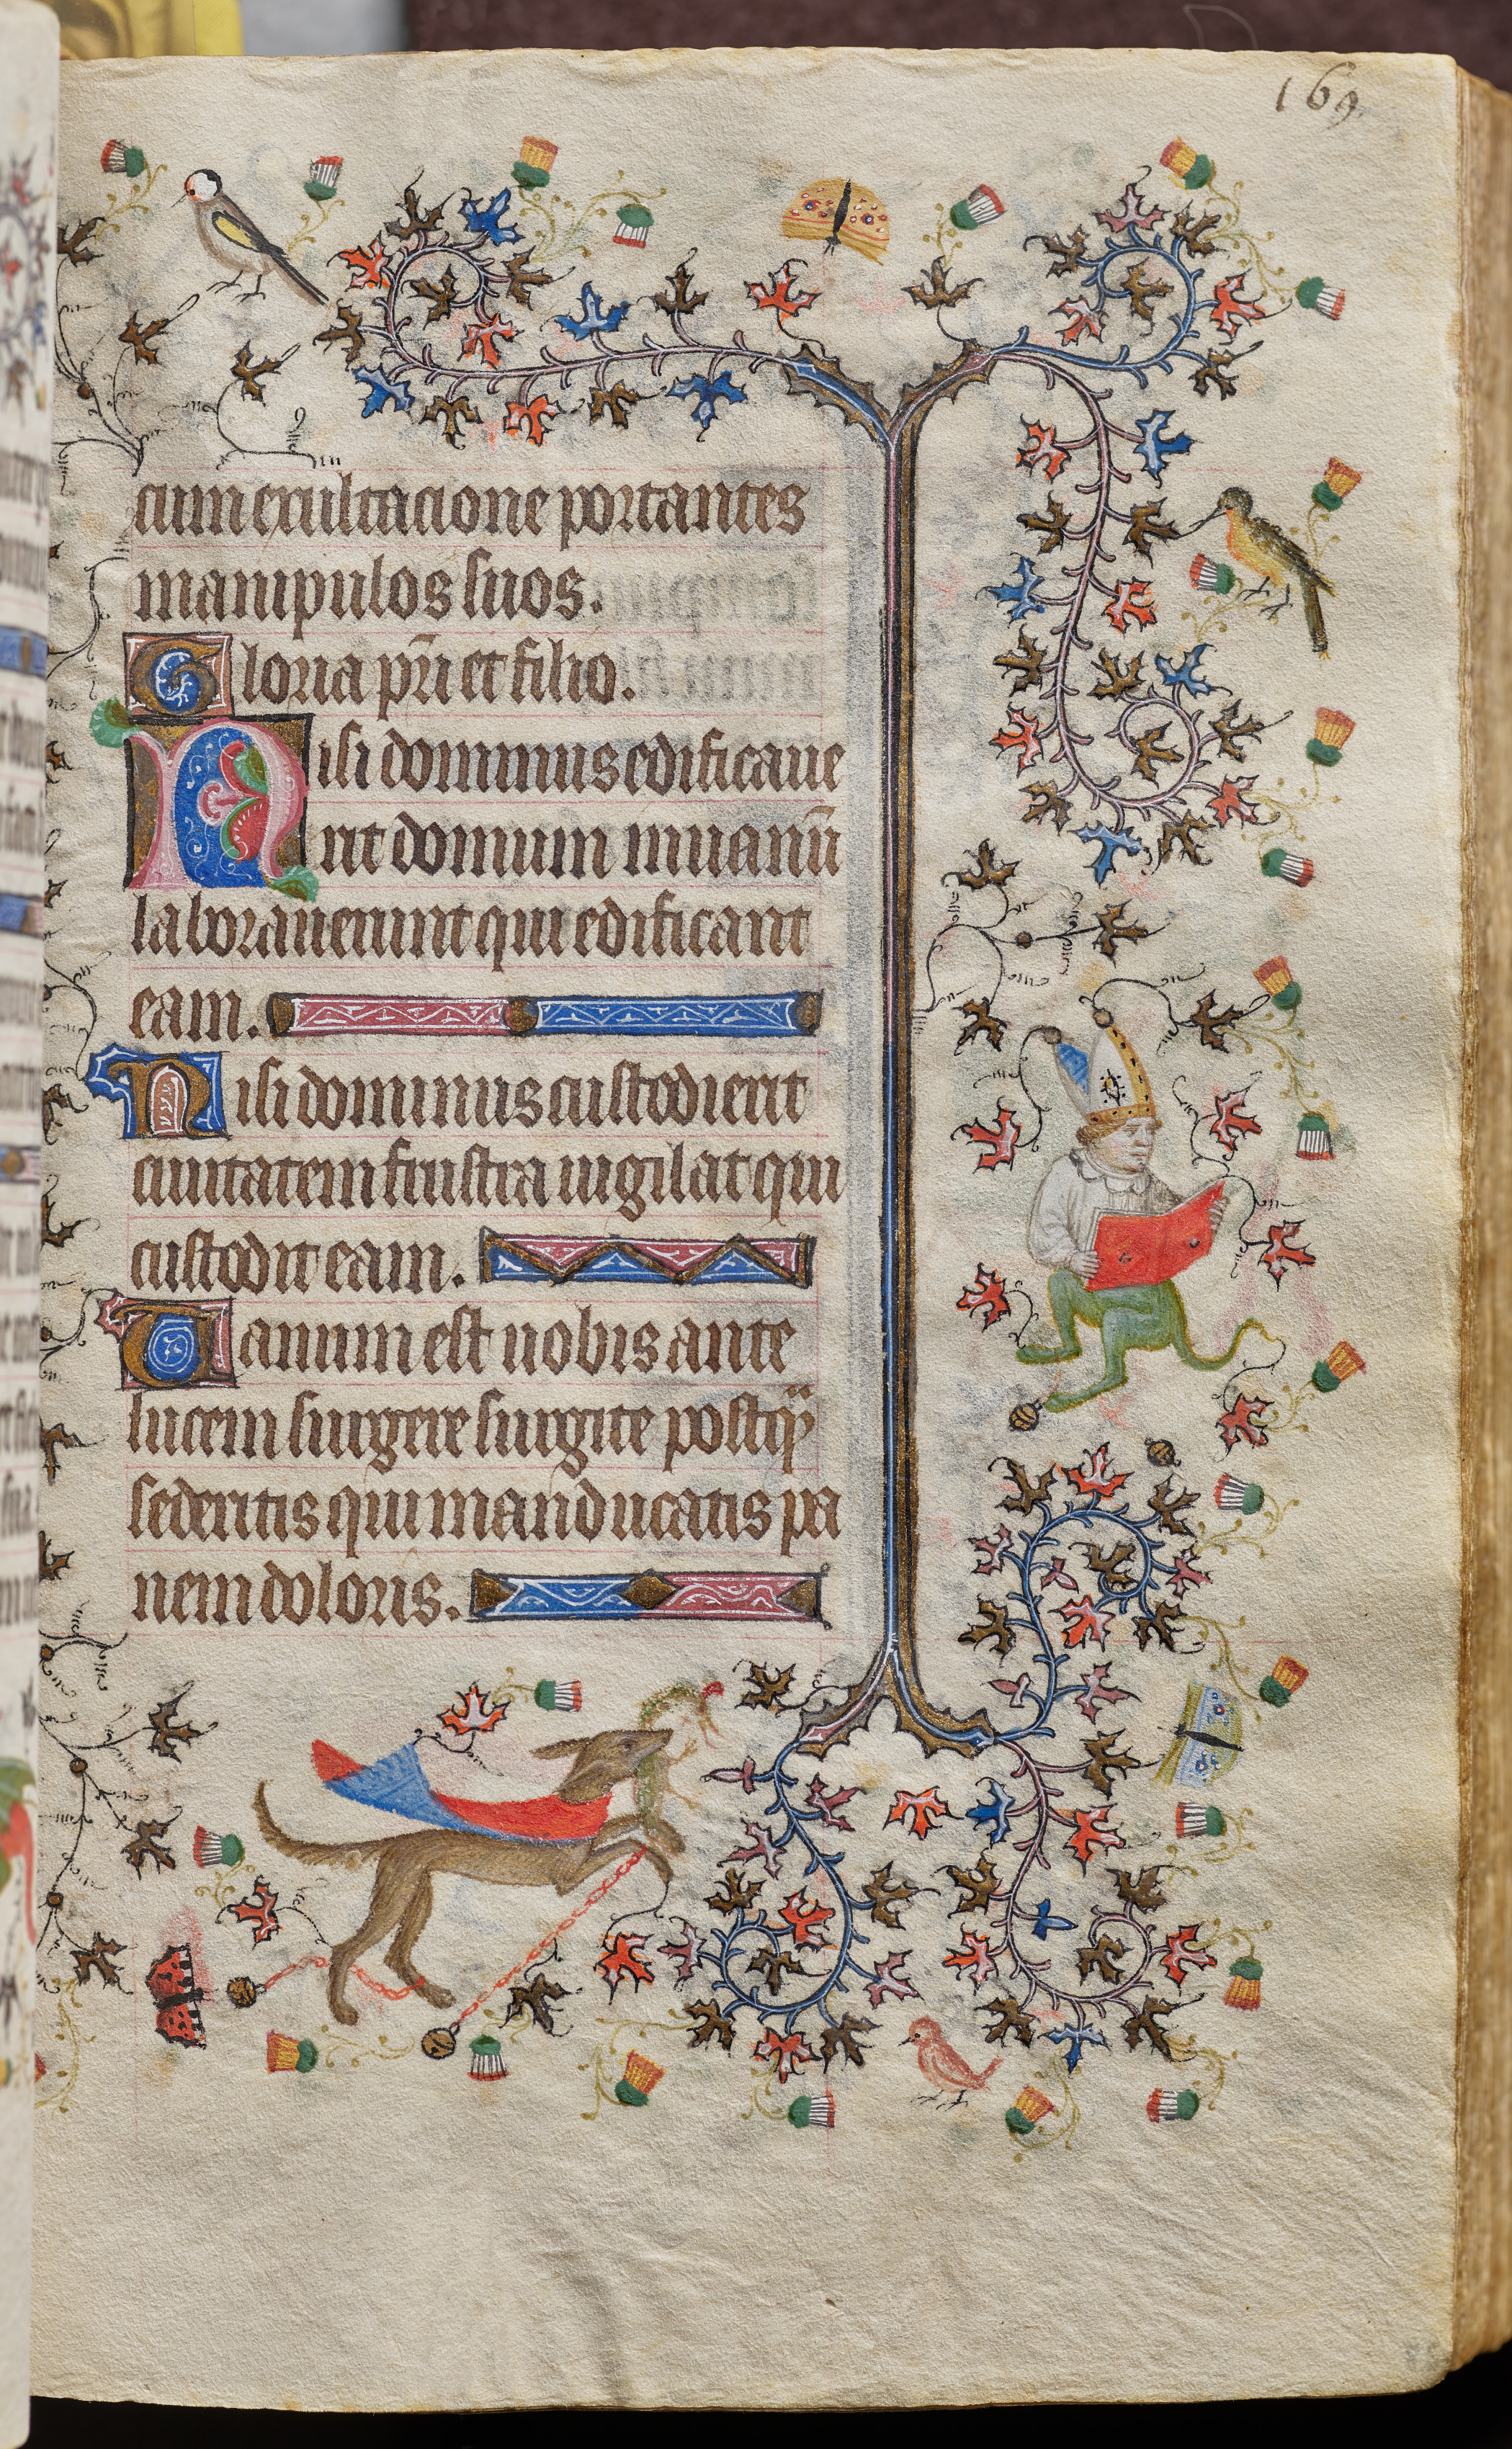 169
cum exultacione portantes
manipulos suos.
Gloria pr̄i et filio.
Nisi dominus edificaue
rit domum in uanū
laborauerunt qui edificant
eam.
Nisi dominus custodierit
ciuitatem frustra uigilat qui
custodit eam.
Uanum est uobis ante
lucem surgere surgite postq̈
sederitis qui manducatis pa
nem doloris.